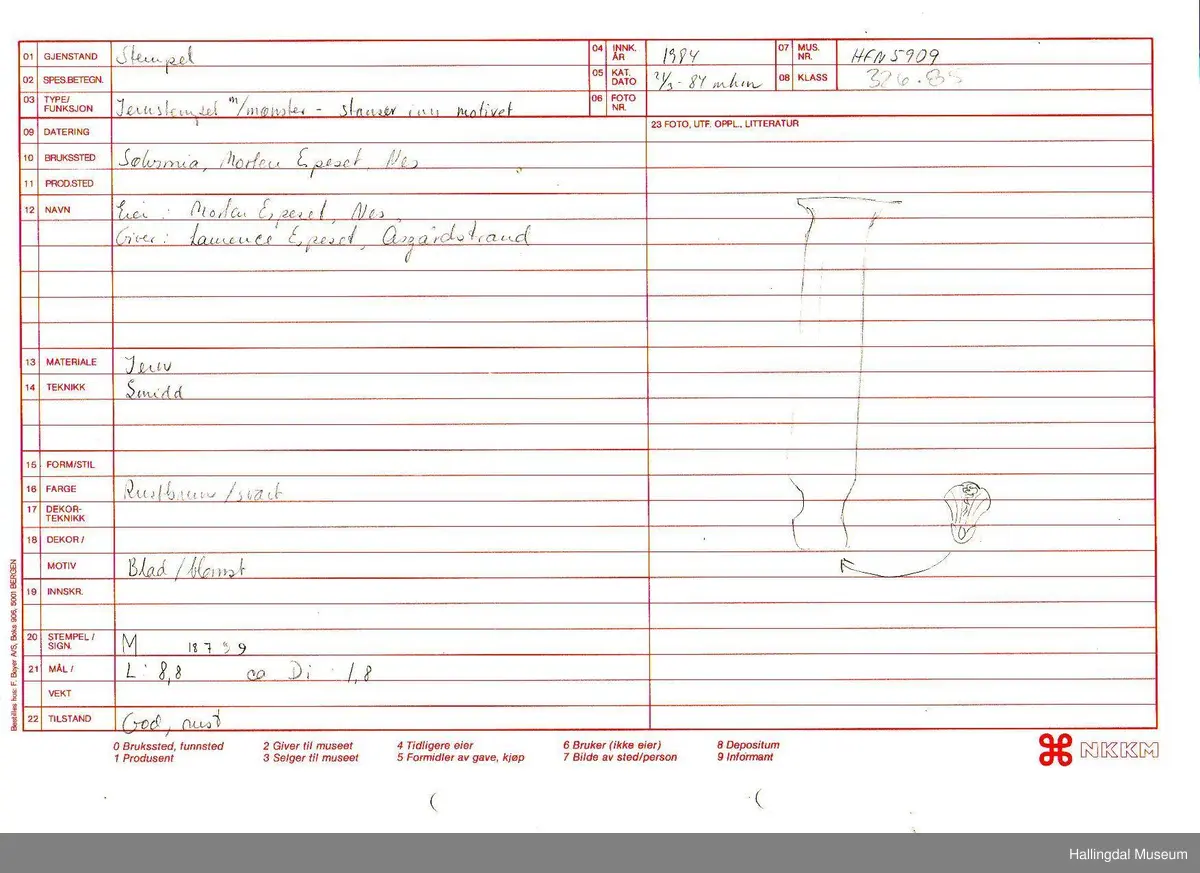 01 GJENSTAND Stempel 04 INNK. ÅR 1984 07 MUS. NR. HFN 5909
02 SPES.BETEGN. 05 KAT. DATO 2/3-84 mhm 08 KLASS 326.85
03 TYPE/ FUNKSJON Jernstempel m/mønster - stanser inn motivet 06 FOTO NR.
09 DATERING 23 FOTO, UTF. OPPL., LITTERATUR
10 BRUKSSTED Morten Espeset, Nes
11 PROD.STED
12 NAVN Eier: Morten Espeset, Nes,
Giver: Laurence Espeset, Åsgårdstrand
13 MATERIALE Jern
14 TEKNIKK Smidd
15 FORM/STIL
16 FARGE Rustbrun/svart
17 DEKOR- TEKNIKK
18 DEKOR /
MOTIV Blad/blomst
19 INNSKR.
20 STEMPEL / SIGN. M 18799
21 MÅL / L: 8,8 ca Di: 1,8
VEKT
22 TILSTAND God, rust
Bestilles hos: F. Beyer A/S, Boks 906, 5001 BERGEN
0 Brukssted, funnsted 2 Giver til museet 4 Tidligere eier 6 Bruker (ikke eier) 8 Depositum
1 Produsent 3 Selger til museet 5 Formidler av gave, kjøp 7 Bilde av sted/person 9 Informant
NKKM
Hallingdal Museum